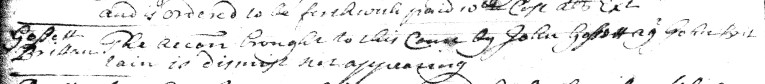 and is ordered to be forthwith paid wth Cost als Ex
Gossett
Brittain
The accon brought to this Court by John Gossett agt John Brit
tain is dismist not appearing